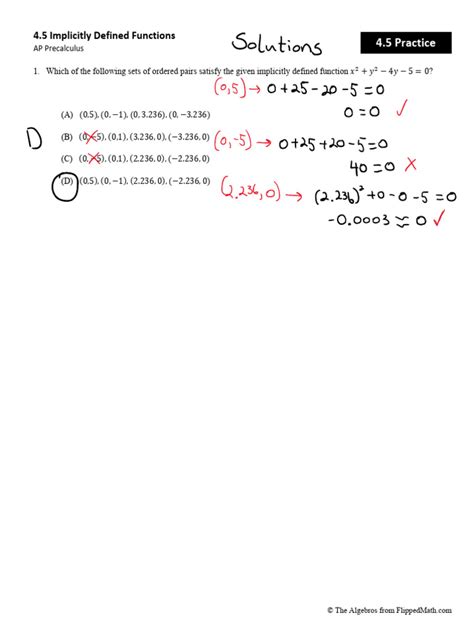 4.5 Implicitly Defined Functions
AP Precalculus
Solutions
4.5 Practice
1. Which of the following sets of ordered pairs satisfy the given implicitly defined function x² + y² − 4y − 5 = 0?
(0,5) → 0+25−20−5=0
0=0 ✓
(A) (0,5), (0,−1), (0,3.236), (0,−3.236)
D
(B) (0,−5), (0,1), (3.236,0), (−3.236,0)
(0,-5) → 0+25+20−5=0
40=0 ✗
(C) (0,−5), (0,1), (2.236,0), (−2.236,0)
(D) (0,5), (0,−1), (2.236,0), (−2.236,0)
(2.236,0) → (2.236)²+0−0−5=0
-0.0003 ≈ 0 ✓
© The Algebros from FlippedMath.com